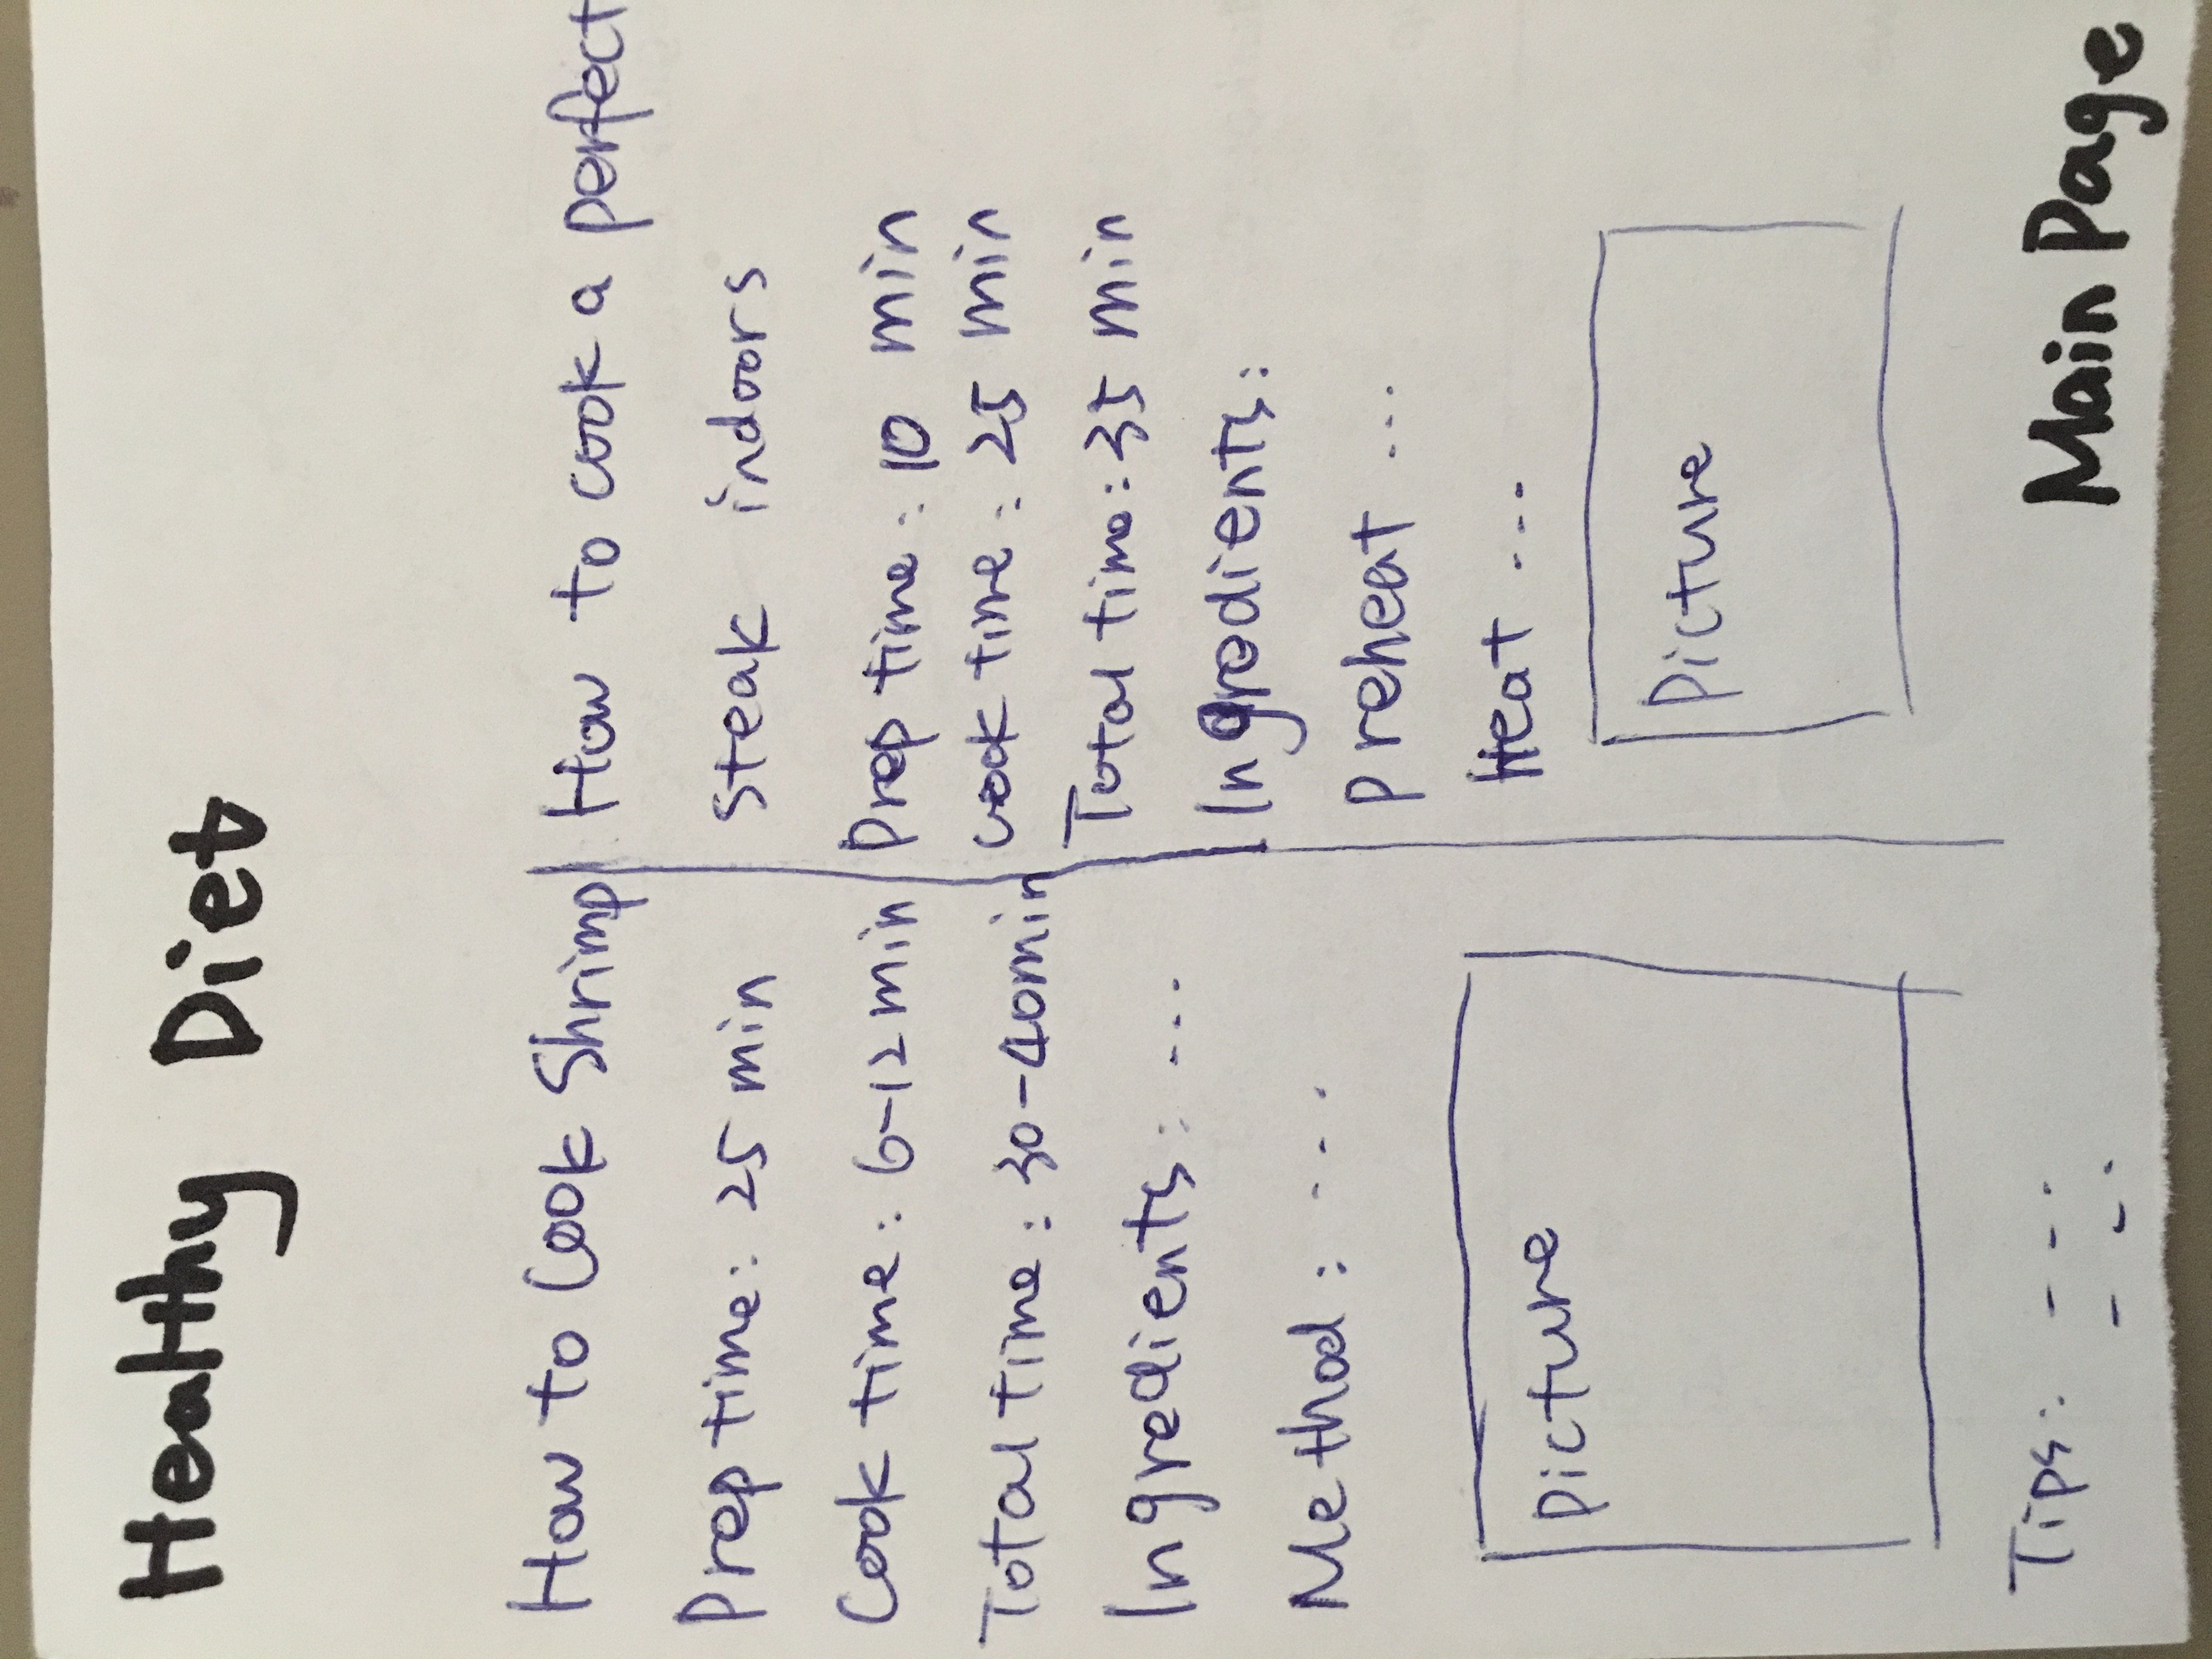 Healthy Diet
How to Cook Shrimp
Prep time: 25 min
Cook time: 6-12 min
Total time: 30-40min
Ingredients: ...
Method: ...
Picture
Tips: ---.
---.
How to cook a perfect
steak indoors
Prep time: 10 min
cook time: 25 min
Total time: 35 min
Ingredients:
Preheat ...
Heat ...
Picture
Main Page